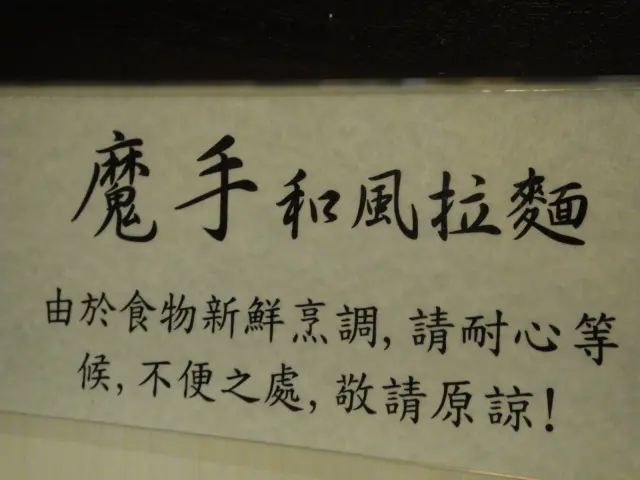 魔手和風拉麵
由於食物新鮮烹調,請耐心等
候,不便之處,敬請原諒!